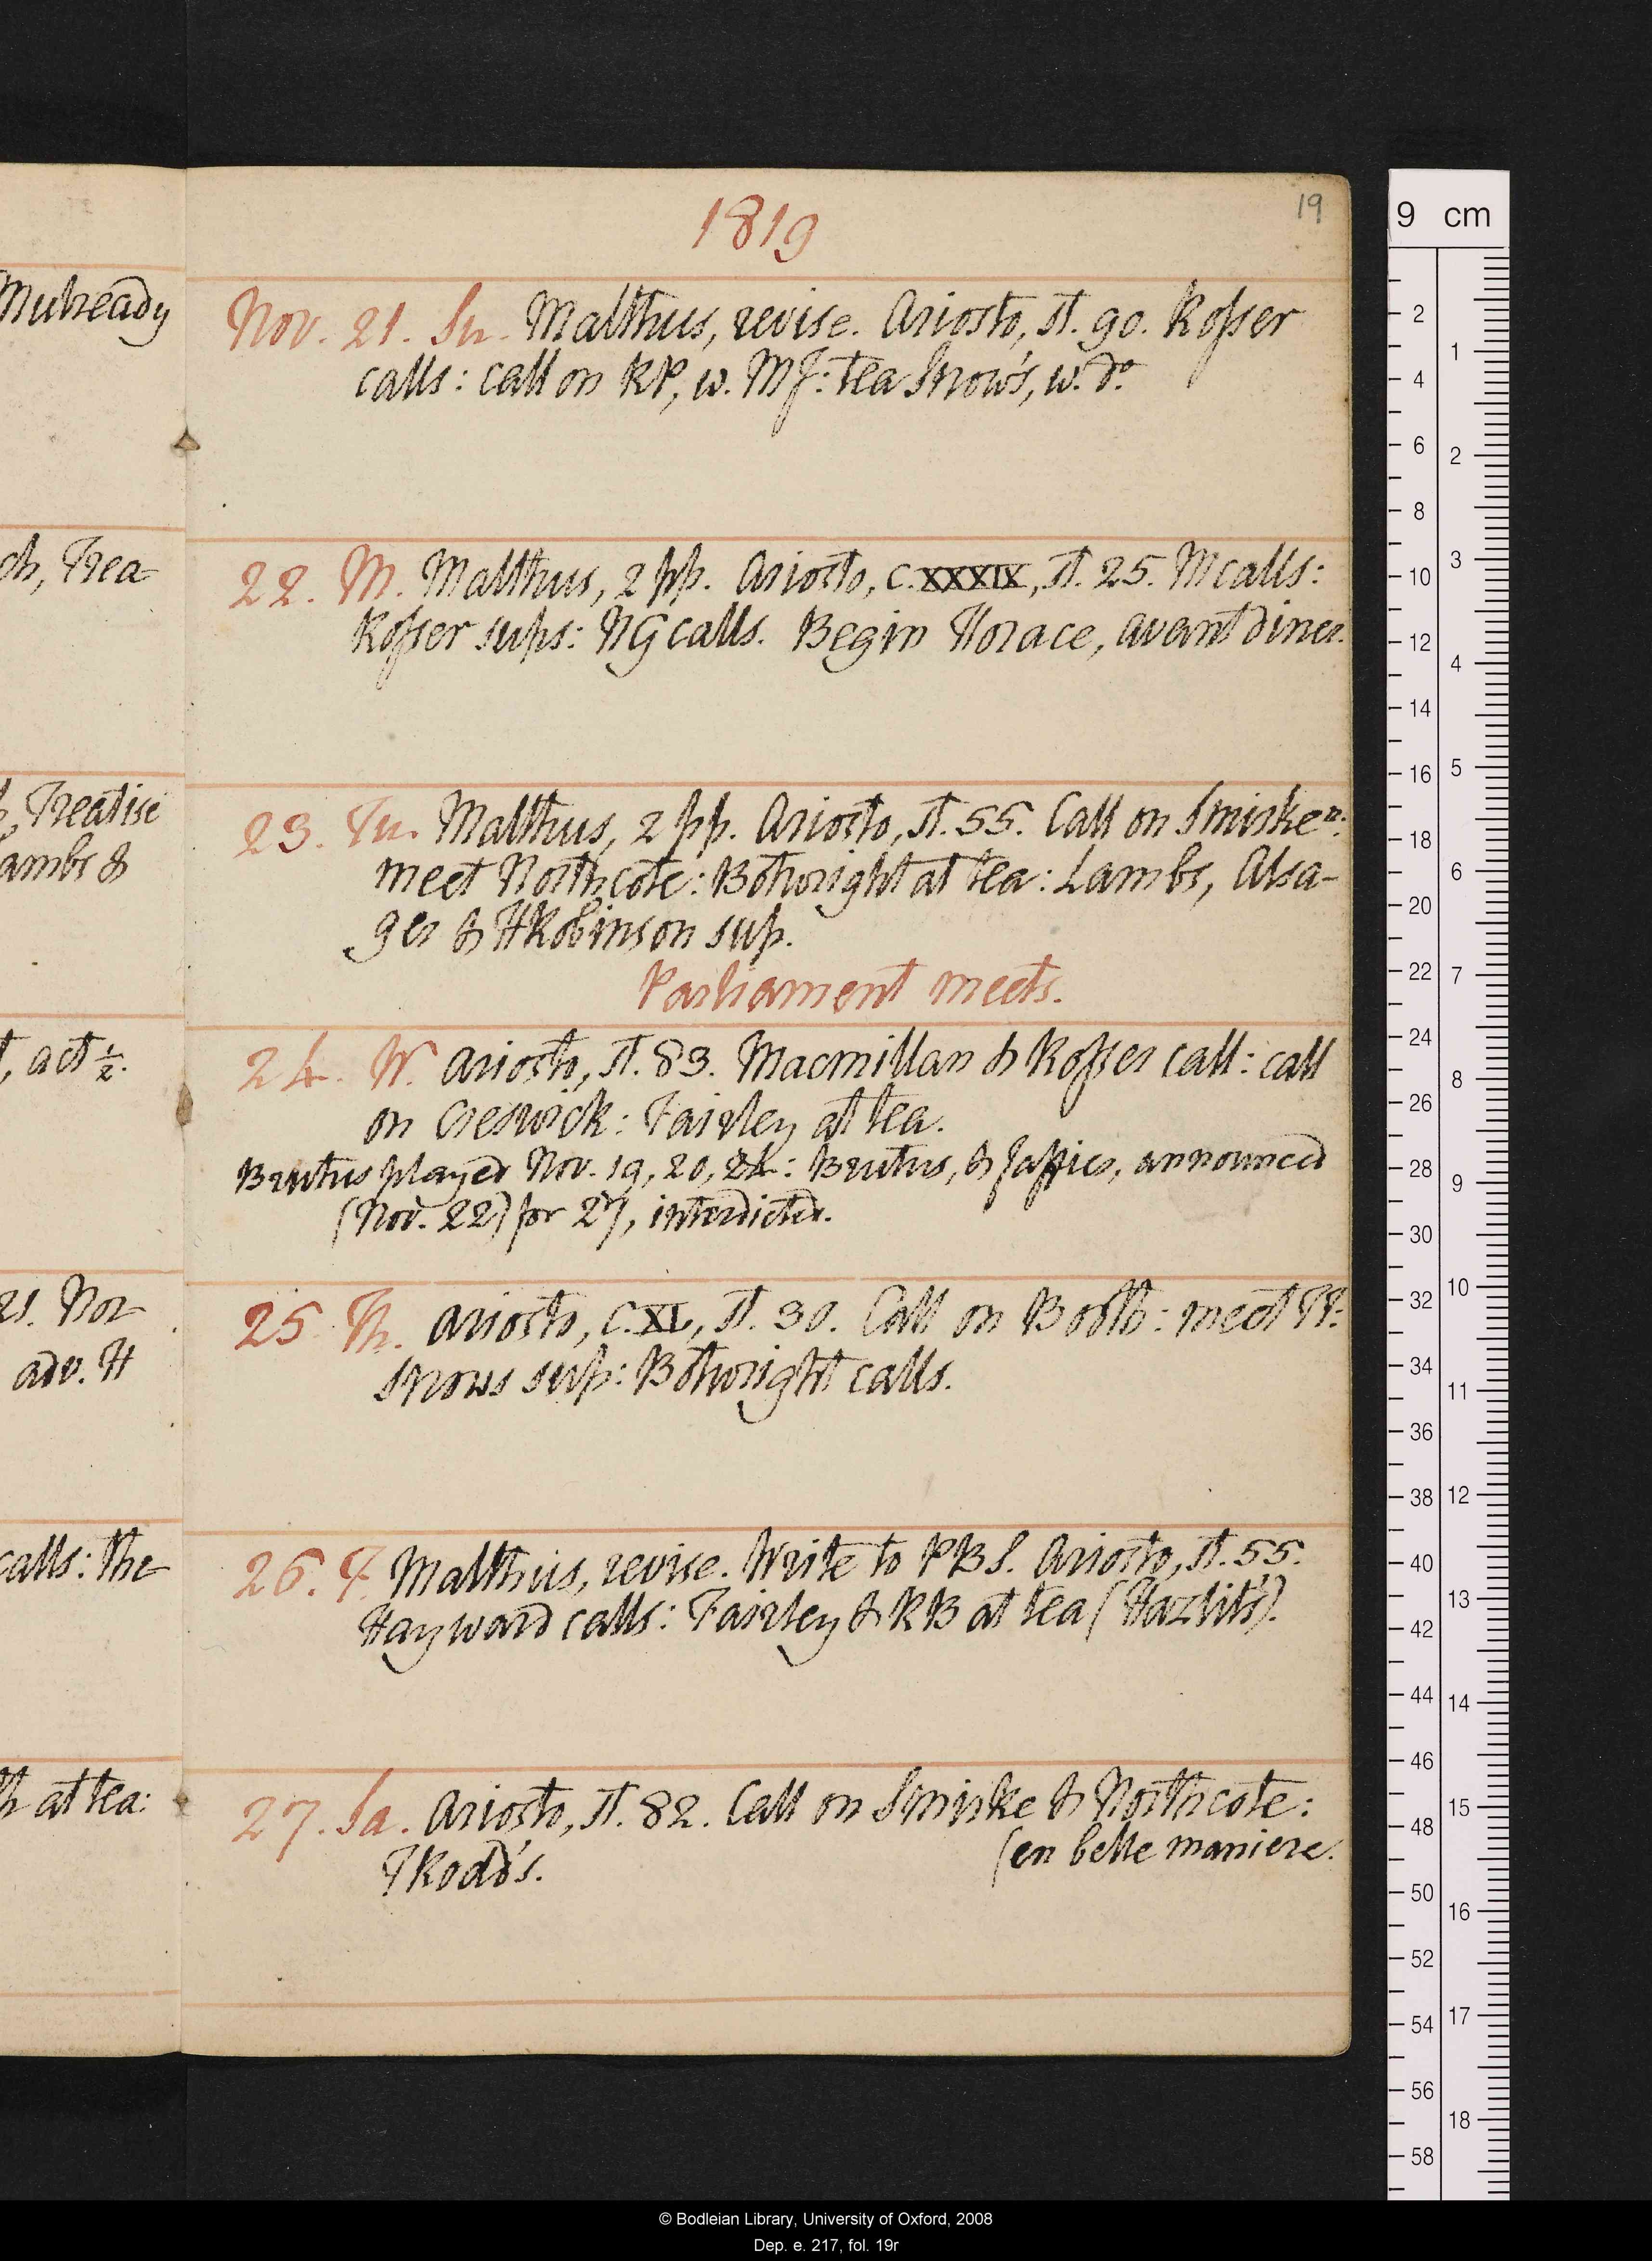 1819
19
Mulready
Nov. 21. Su. Malthus, revise. Ariosto, st. 90. Rosser
calls: call on RP, w. MJ: tea Snow's, w. do.
ch, Trea-
22. M. Malthus, 2 pp. Ariosto, c. XXXIX, st. 25. M calls:
Rosser sups: NG calls. Begin Horace, avant diner.
Treatise
ambs &
23. Tu. Malthus, 2 pp. Ariosto, st. 55. Call on Smirke n:
meet Northcote: Bothwright at tea: Lambs, Alsa-
ger & HRobinson sup.
Parliament meets.
, act ½.
24. W. Ariosto, st. 83. Macmillan & Rosser call: call
on Creswick: Fairley at tea.
Brutus played Nov. 19, 20, 24: Brutus, & Jaffier, announced
(Nov. 22) for 27, interdicted.
21. Nor-
adv. H
25. Th. Ariosto, c. XL, st. 30. Call on Booth: meet H:
Snows sup: Bothwright calls.
calls: the-
26. F. Malthus, revise. Write to PBS. Ariosto, st. 55.
Hayward calls: Fairley & RB at tea (Hazlit's).
h at tea:
27. Sa. Ariosto, st. 82. Call on Smirke & Northcote:
TRodd's. (en belle maniere.
9 cm
2
4
6
8
10
12
14
16
18
20
22
24
26
28
30
32
34
36
38
40
42
44
46
48
50
52
54
56
58
1
2
3
4
5
6
7
8
9
10
11
12
13
14
15
16
17
18
© Bodleian Library, University of Oxford, 2008
Dep. e. 217, fol. 19r